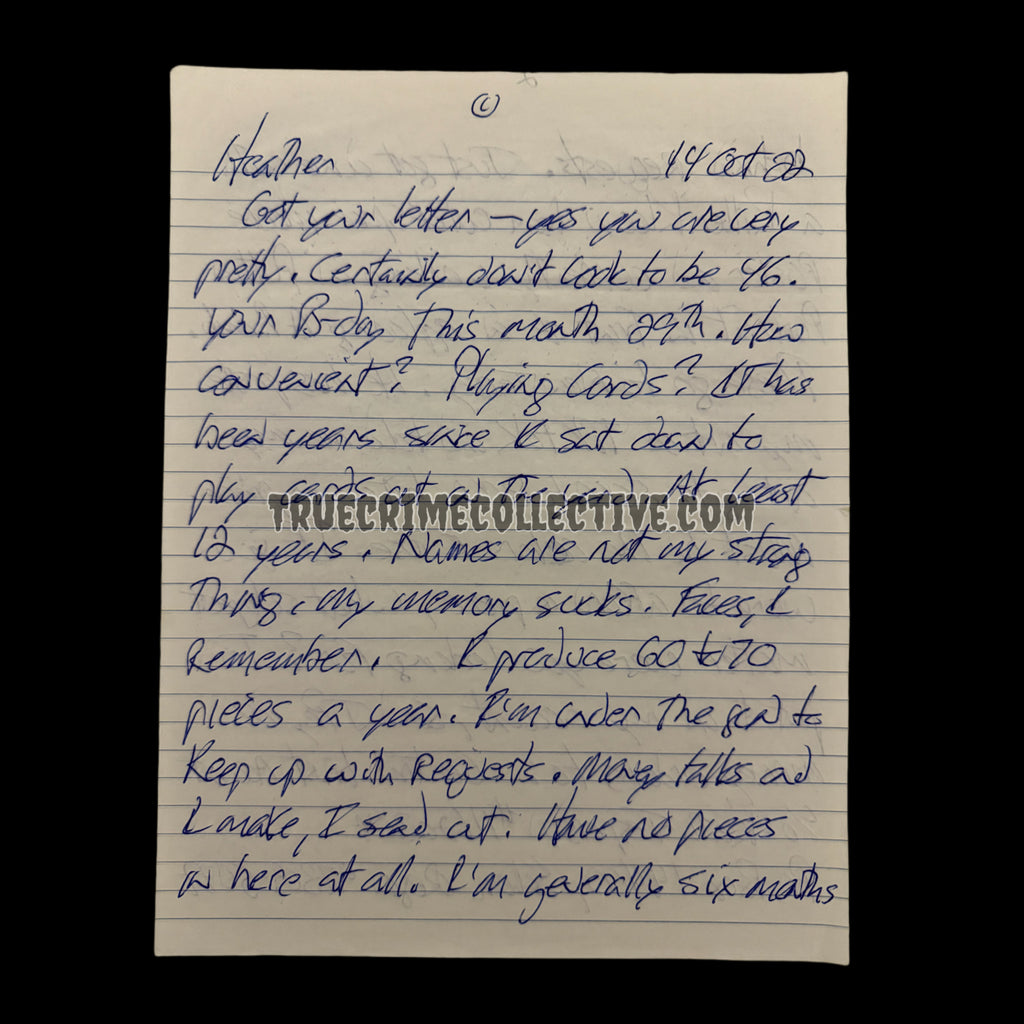 ©
Heather 14 Oct 22
Got your letter – yes you are very
pretty. Certainly don't look to be 46.
your B-day This month 29th. How
convenient? Playing Cards? It has
been years since I sat down to
play cards out on The yard. At least
TRUECRIMECOLLECTIVE.COM
12 years. Names are not my strong
Thing, my memory sucks. Faces, I
Remember. I produce 60 to 70
pieces a year. I'm under The gun to
Keep up with Requests. Money talks and
I make, I send out. Have no pieces
in here at all. I'm generally six months